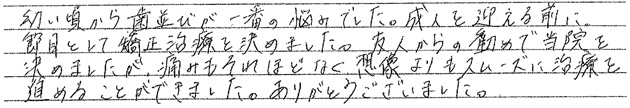 幼い頃から歯並びが一番の悩みでした。成人を迎える前に、
節目として矯正治療を決めました。友人からの勧めで当院を
決めましたが、痛みもそれほどなく、想像よりもスムーズに治療を
進めることができました。ありがとうございました。